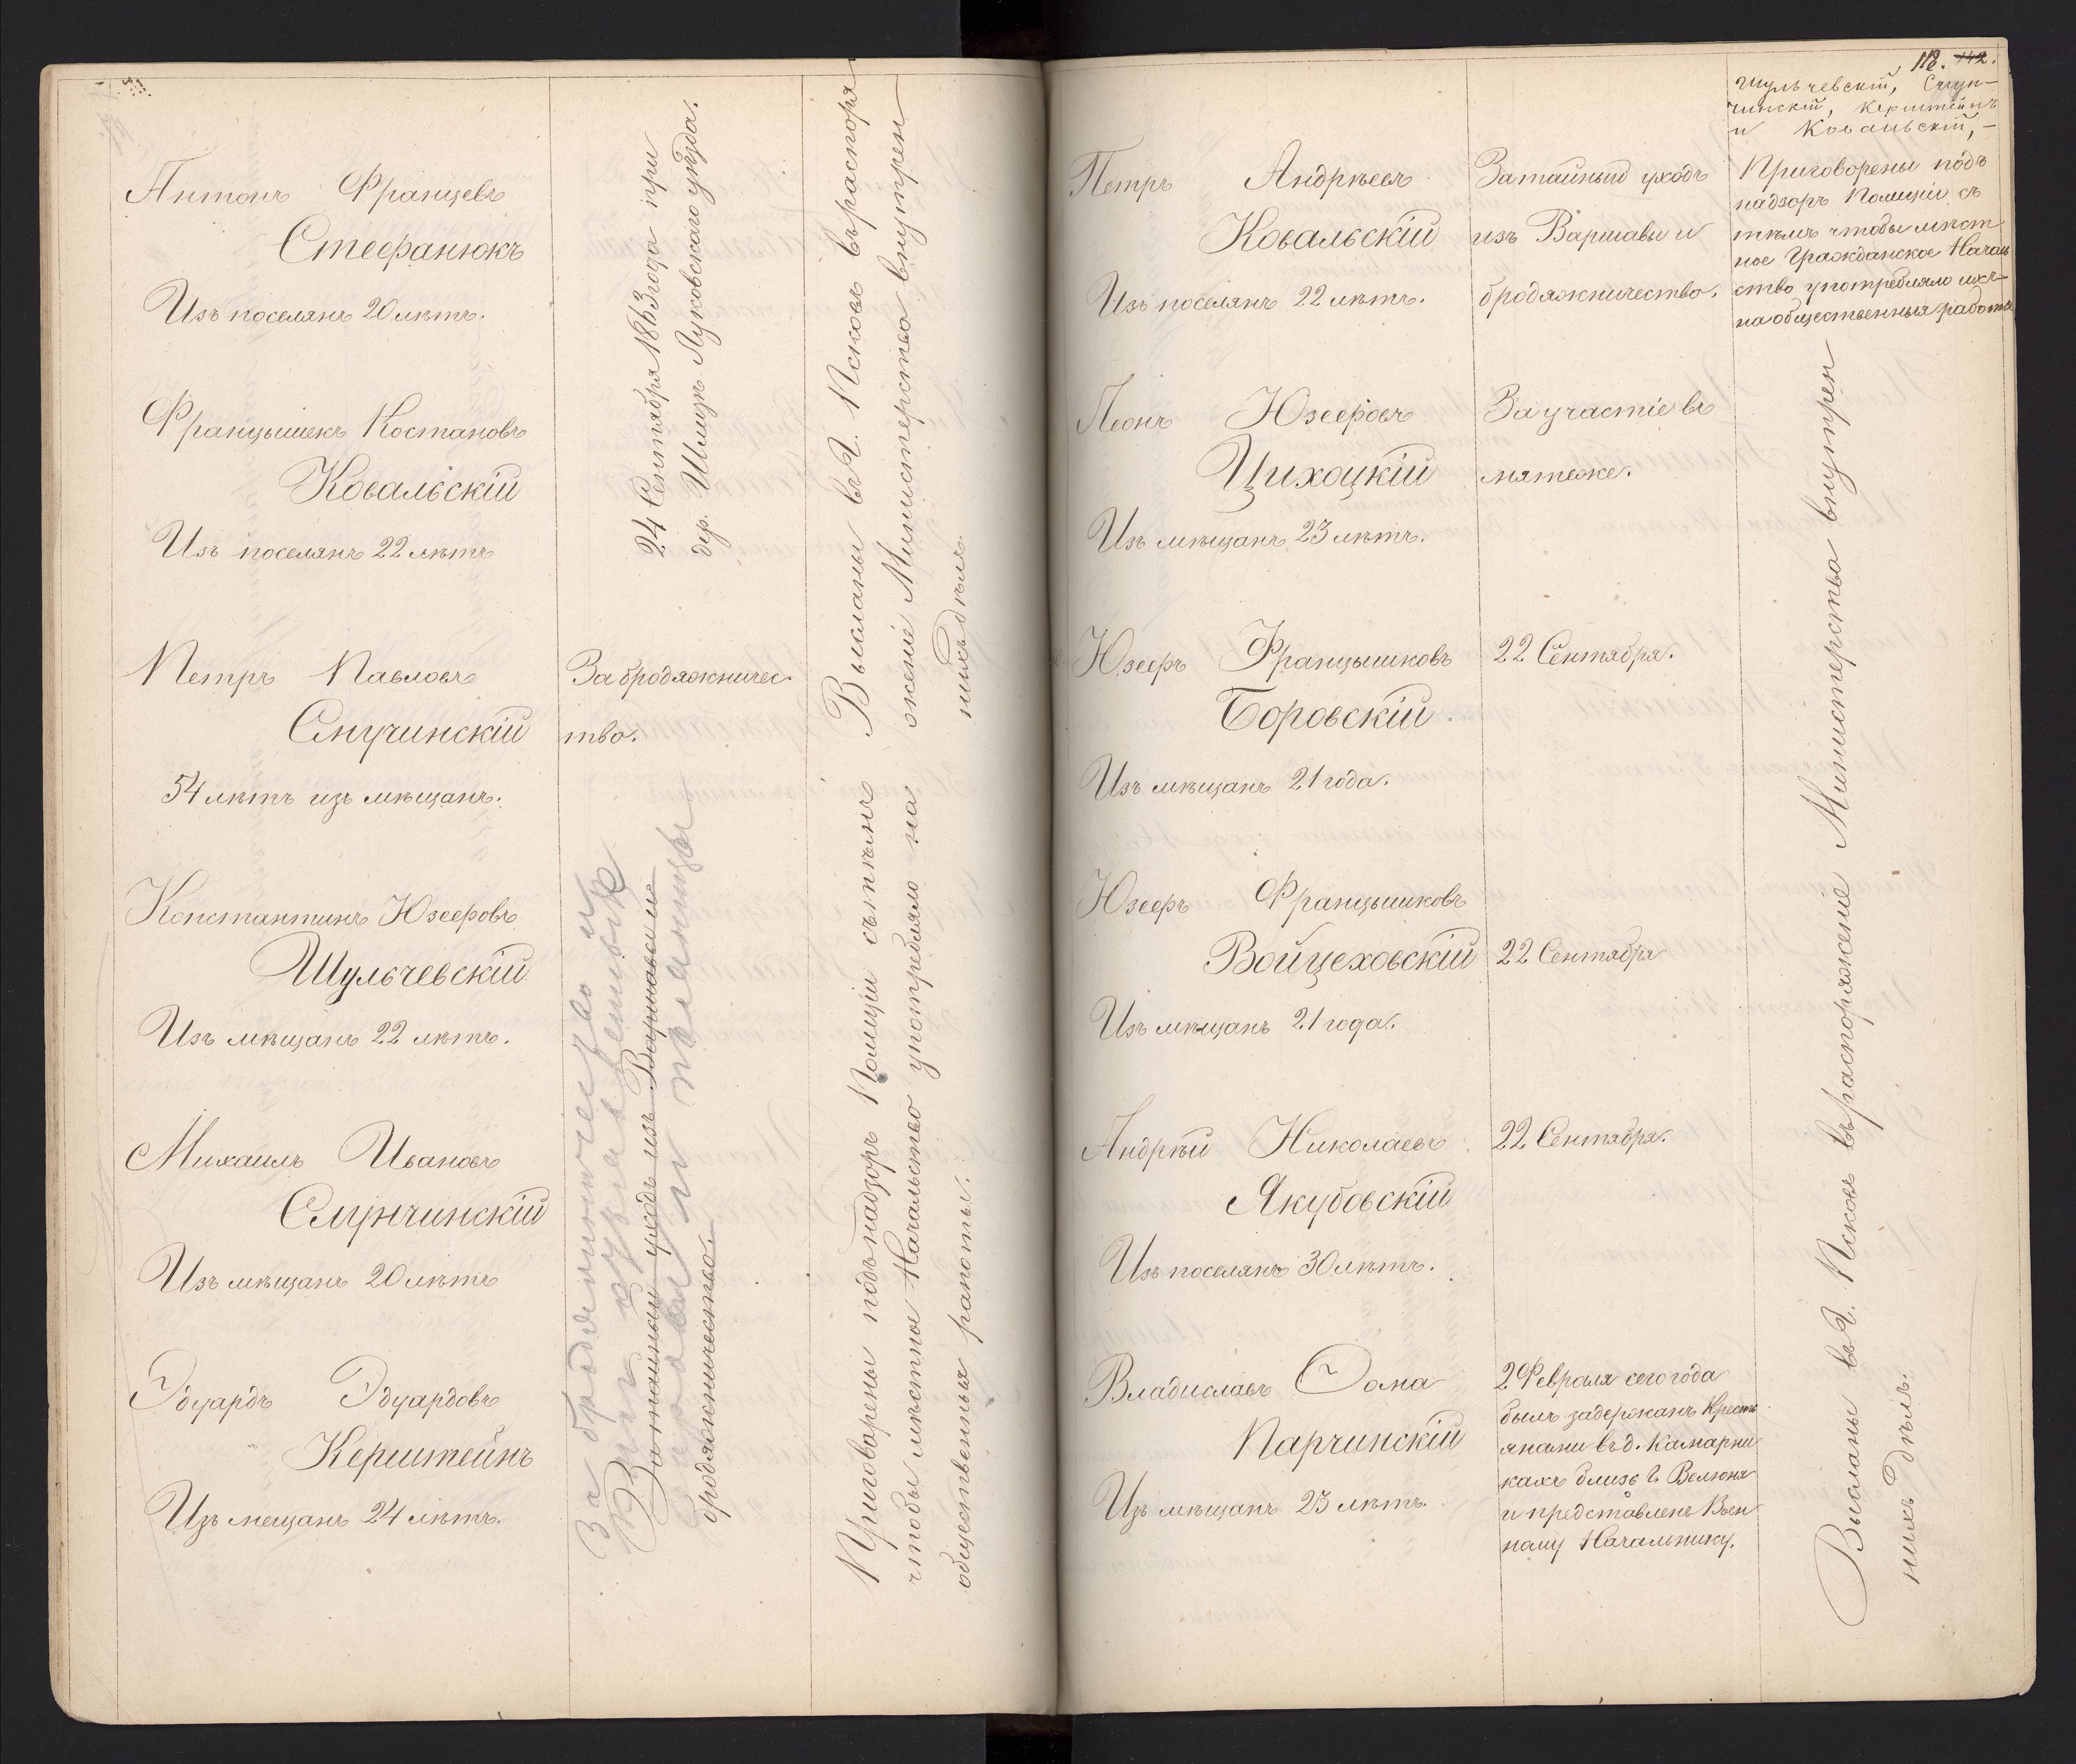 Антонъ Францевъ
Стефанюкъ
Изъ поселянъ 20 лѣтъ.
Францышекъ Костановъ
Ковальскій
Изъ поселянъ 22 лѣтъ
24 Сентября 1863 года при
дер. Шлицъ Луковскаго уѣзда.
Петръ Павловъ
Снучинскій
54 лѣтъ изъ мѣщанъ.
За бродяжничес-
тво.
Константинъ Юзефовъ
Шульчевскій
Изъ мѣщанъ 22 лѣтъ.
Михаилъ Ивановъ
Слунчинскій
Изъ мѣщанъ 20 лѣтъ
Эдуардъ Эдуардовъ
Керштейнъ
Изъ мещанъ 24 лѣтъ.
За бродяжничество и
За тайный уходъ изъ Варшавы и
бродяжничество.
Высланы въ Г. Псковъ въ распоря
женіе Министерства внутрен
нихъ дѣлъ.
Приговорены подъ надзоръ Полиціи съ тѣмъ
чтобы мѣстное Начальство употребляло на
общественныя работы.
118. 142.
Шульчевскій, Слун-
чинскій, Керштейнъ
и Ковальскій, -
Приговорены подъ
надзоръ Полиціи съ
тѣмъ чтобы мѣст
ное Гражданское Началь
ство употребляло ихъ
на общественныя работы
Петръ Андрѣевъ
Ковальскій
Изъ поселянъ 22 лѣтъ.
За тайный уходъ
изъ Варшавы и
бродяжничество.
Леонъ Юзефовъ
Цихоцкій
Изъ мѣщанъ 23 лѣтъ.
За участіе въ
мятеже.
Юзефъ Францышковъ
Боровскій
Изъ мѣщанъ 21 года.
22 Сентября.
Юзефъ Францышковъ
Войцеховскій
Изъ мѣщанъ 21 года.
22 Сентября
Андрѣй Николаевъ
Якубовскій
Изъ поселянъ 30 лѣтъ.
22 Сентября.
Владиславъ Ѳома
Парчинскій
Изъ мѣщанъ 25 лѣтъ.
2 Февраля сего года
былъ задержанъ Кресть
янами въ д. Камарни
кахъ близь г. Велюня
и представленъ Воен
ному Начальнику.
Высланы въ Г. Псковъ въ распоряженіе Министерства внутрен
нихъ дѣлъ.